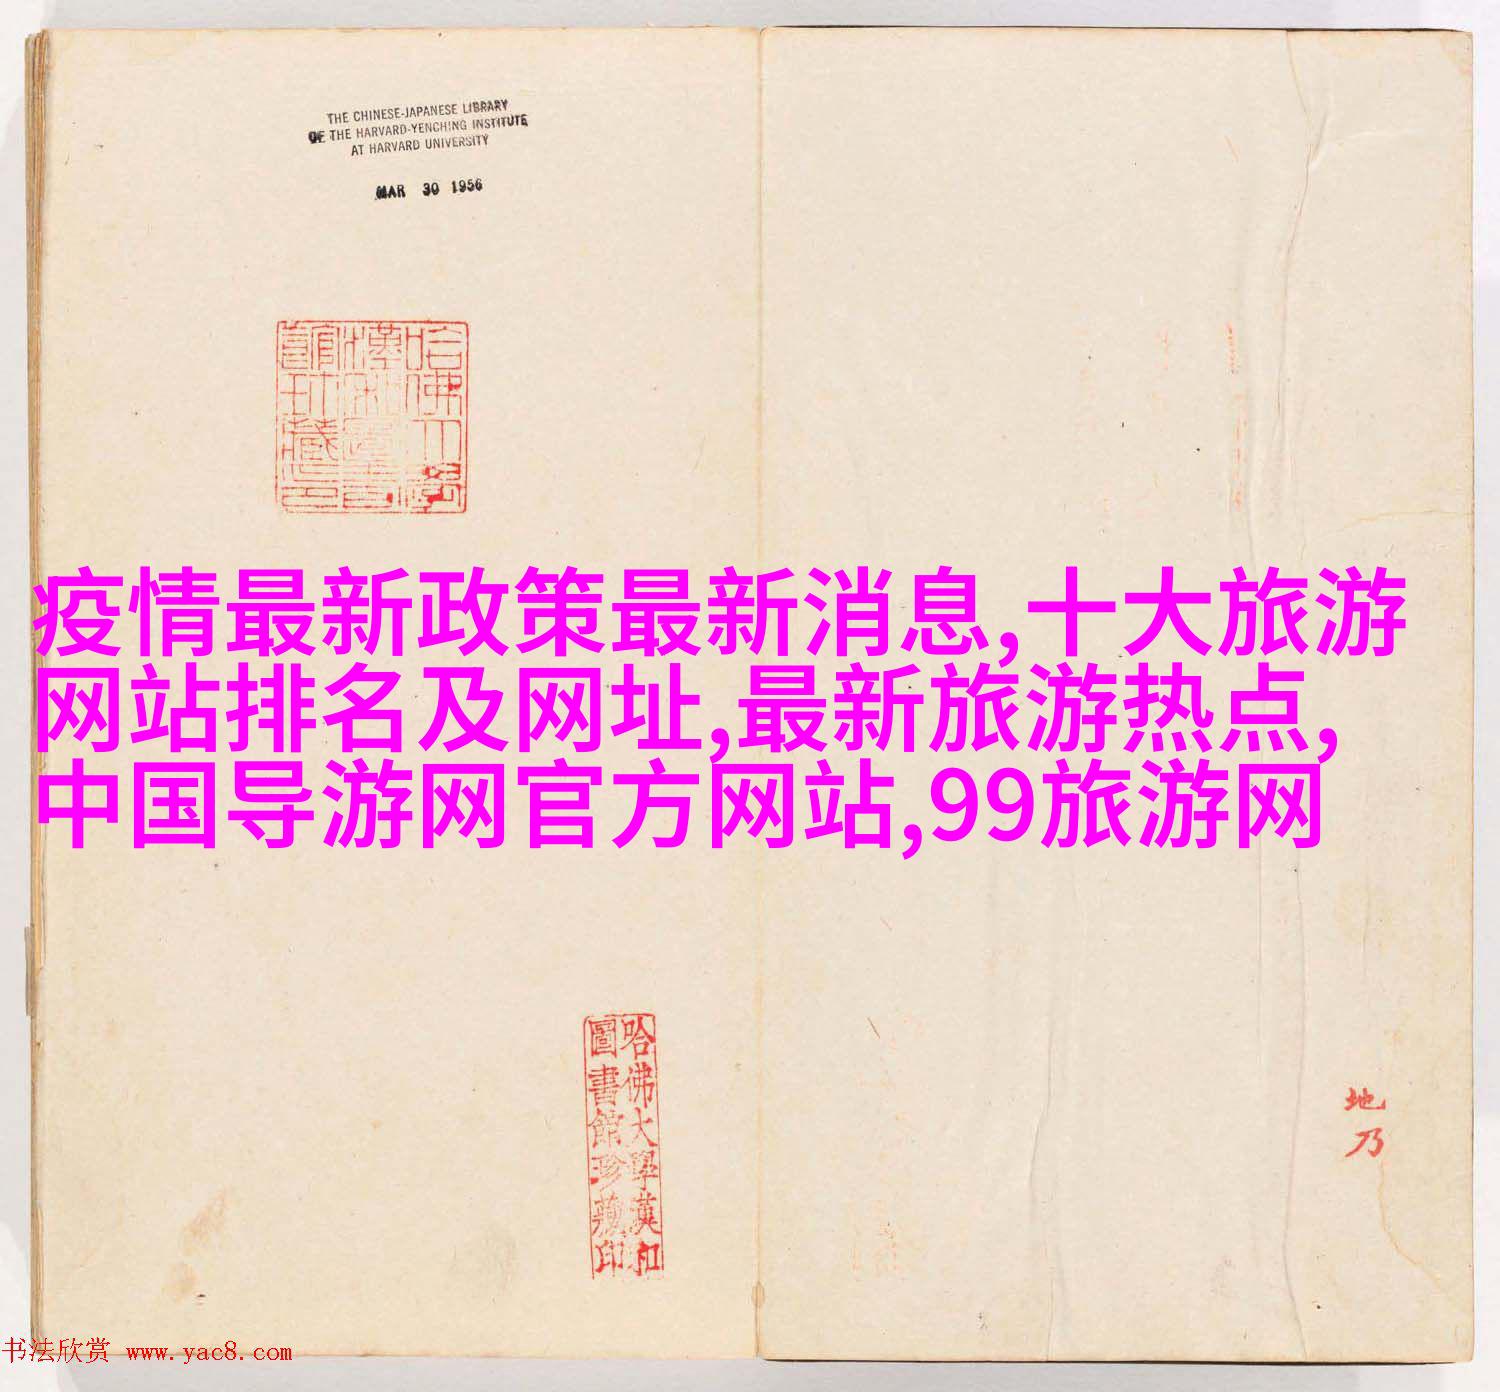 THE CHINESE-JAPANESE LIBRARY
OF THE HARVARD-YENCHING INSTITUTE
AT HARVARD UNIVERSITY
MAR 30 1956
哈佛大學
漢和圖書
館珍藏印
疫情最新政策最新消息,十大旅游
网站排名及网址,最新旅游热点,
中国导游网官方网站,99旅游网
哈佛大學漢和
圖書館珍藏印
地
乃
书法欣赏 www.yac8.com